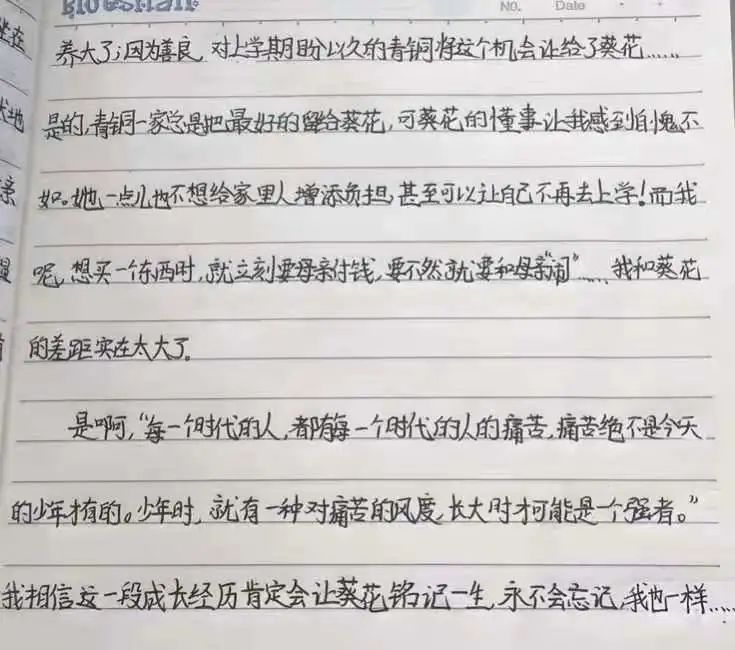 No.
Date
养大了；因为善良，对上学期月分以久的青铜将这个机会让给了葵花……
是的，青铜一家总是把最好的留给葵花，可葵花的懂事让我感到自愧不
如。她一点儿也不想给家里人增添负担，甚至可以让自己不再去上学！而我
呢，想买一个东西时，就立刻要母亲付钱，要不然就要和母亲“闹”……我和葵花
的差距实在太大了。
是啊，“每一个时代的人，都有每一个时代的人的痛苦，痛苦绝不是今天
的少年才有的。少年时，就有一种对痛苦的风度，长大时才可能是一个强者。”
我相信这一段成长经历肯定会让葵花铭记一生，永不会忘记，我也一样……